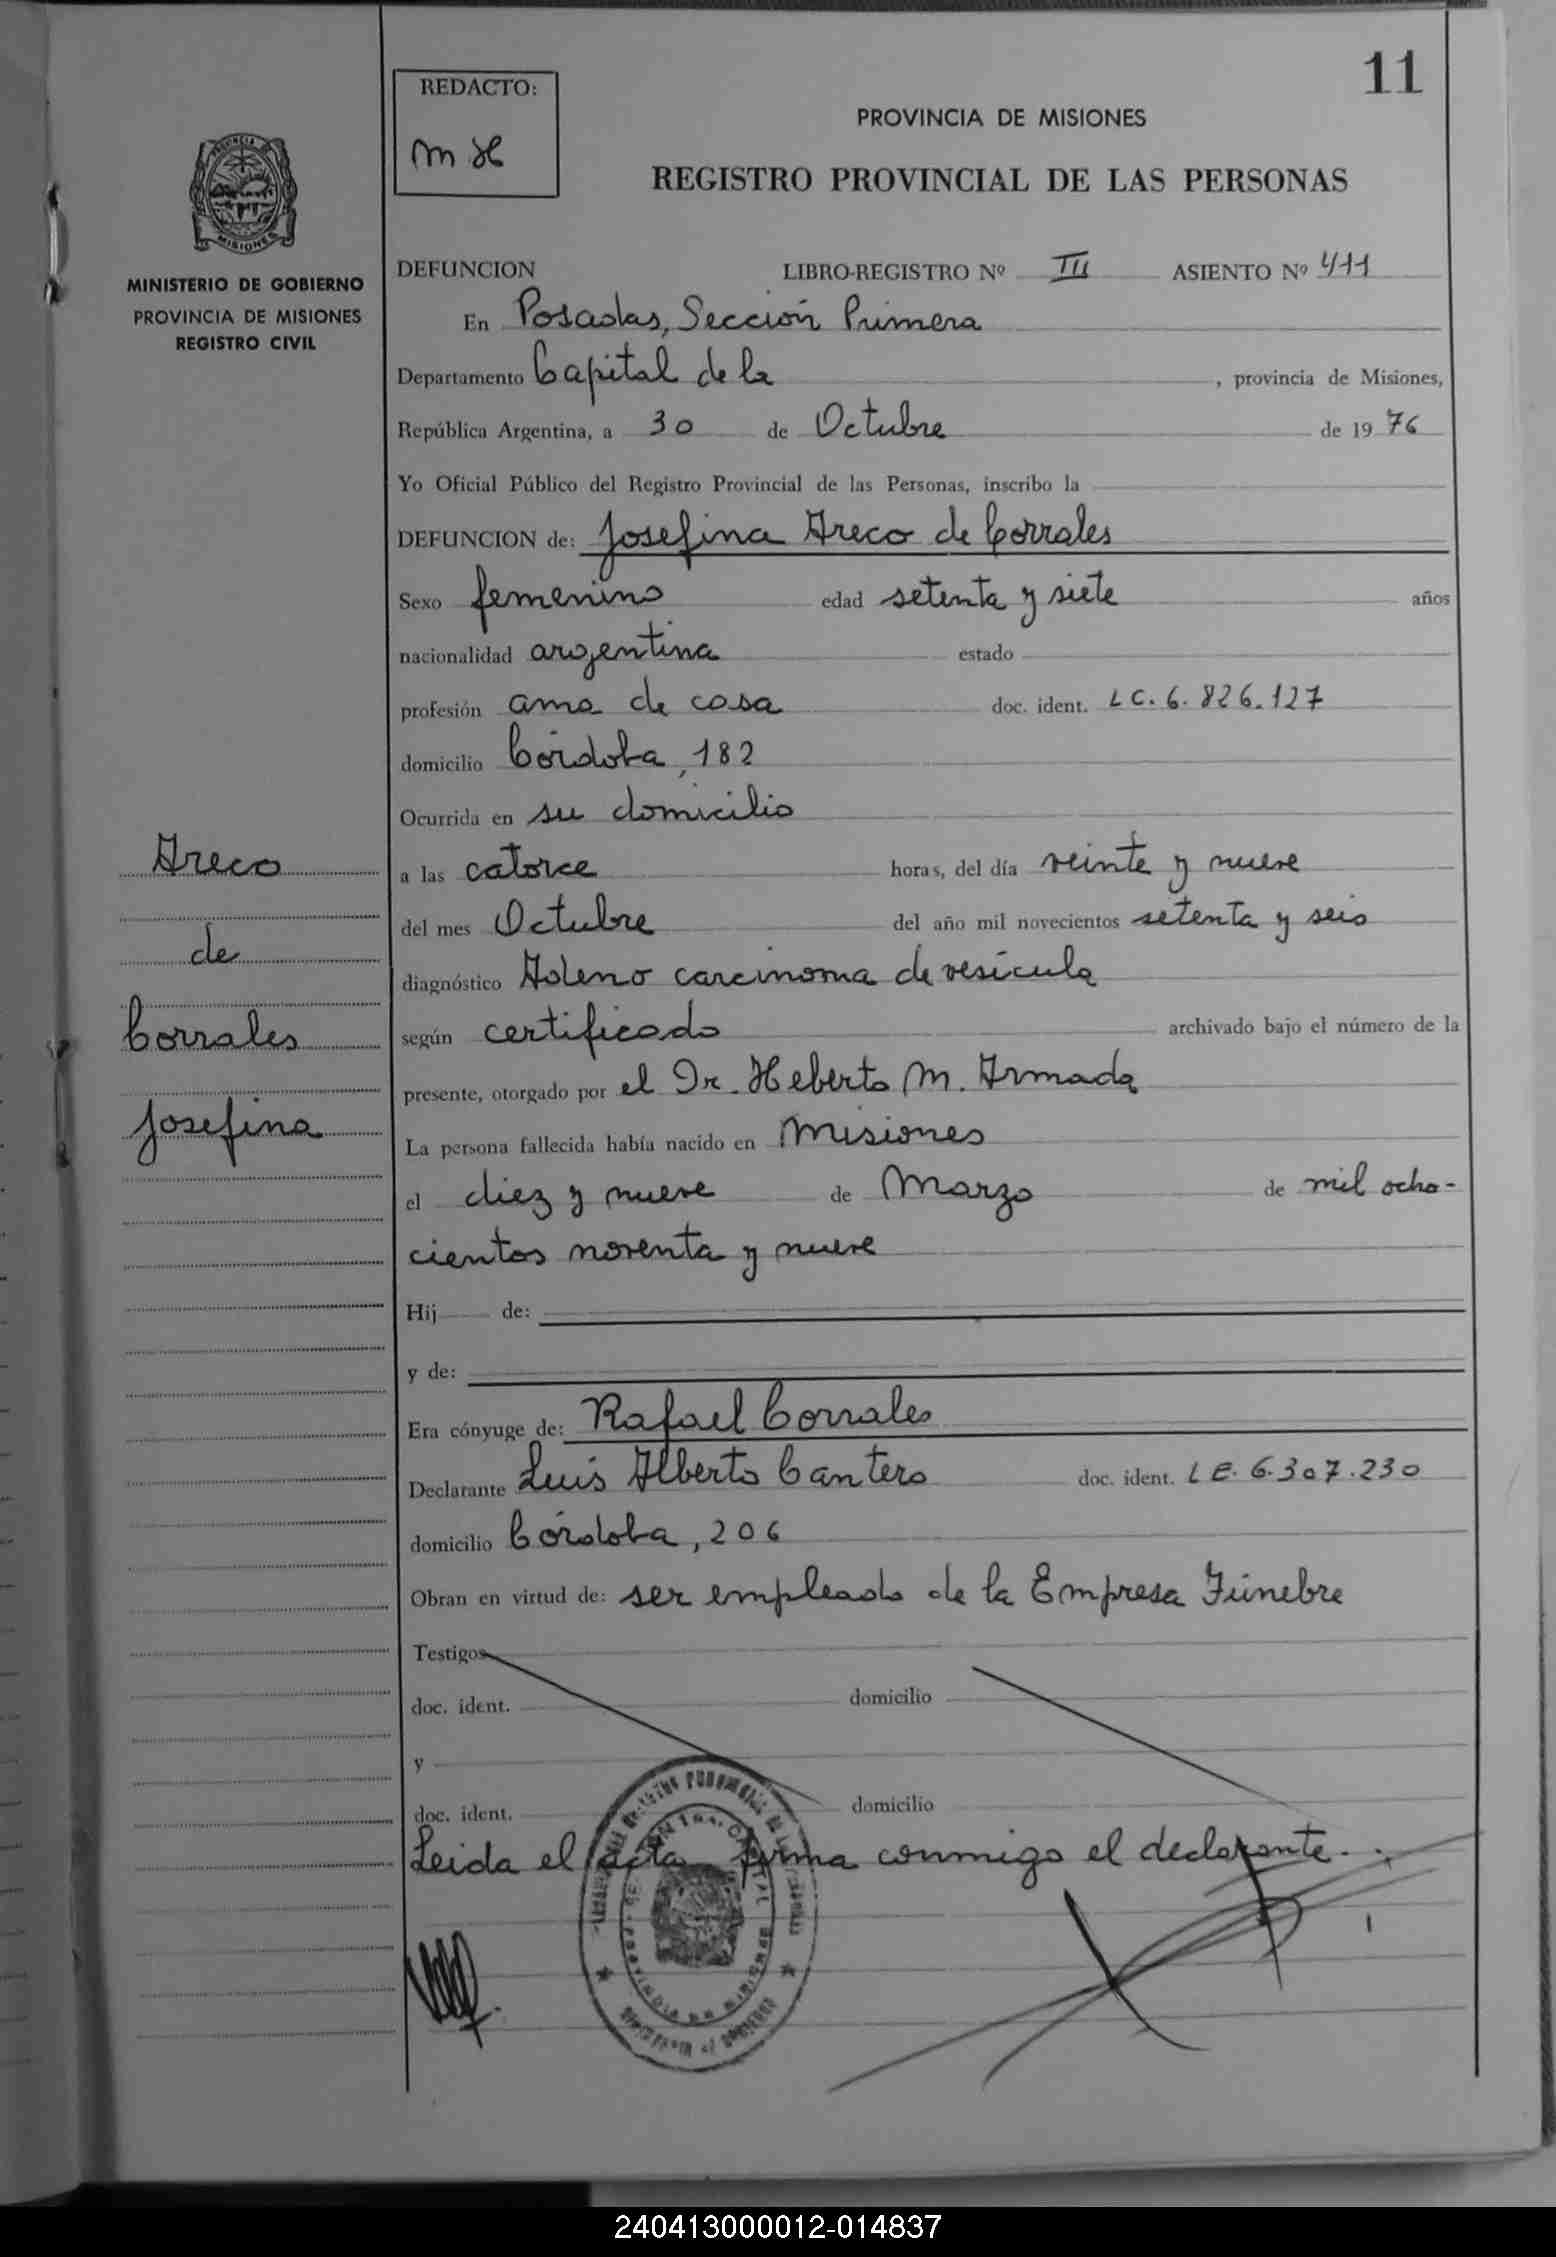 11
REDACTO:
M H
PROVINCIA DE MISIONES
REGISTRO PROVINCIAL DE LAS PERSONAS
MISIONES
MINISTERIO DE GOBIERNO
PROVINCIA DE MISIONES
REGISTRO CIVIL
DEFUNCION LIBRO-REGISTRO Nº III ASIENTO Nº 411
En Posadas, Sección Primera
Departamento Capital de la , provincia de Misiones,
República Argentina, a 30 de Octubre de 19 76
Yo Oficial Público del Registro Provincial de las Personas, inscribo la
DEFUNCION de: Josefina Areco de Corrales
Sexo femenino edad setenta y siete años
nacionalidad argentina estado
profesión ama de casa doc. ident. LC. 6.826.127
domicilio Córdoba, 182
Ocurrida en su domicilio
a las catorce horas, del día veinte y nueve
del mes Octubre del año mil novecientos setenta y seis
diagnóstico Adeno carcinoma de vesícula
según certificado archivado bajo el número de la
presente, otorgado por el Dr. Heberto M. Armada
La persona fallecida había nacido en Misiones
el diez y nueve de Marzo de mil ocho-
cientos noventa y nueve
Hij de:
y de:
Era cónyuge de: Rafael Corrales
Declarante Luis Alberto Cantero doc. ident. LE. 6.307.230
domicilio Córdoba, 206
Obran en virtud de: ser empleado de la Empresa Fúnebre
Testigos
doc. ident. domicilio
y
doc. ident. domicilio
Leida el acta firma conmigo el declarante.
Areco
de
Corrales
Josefina
240413000012-014837